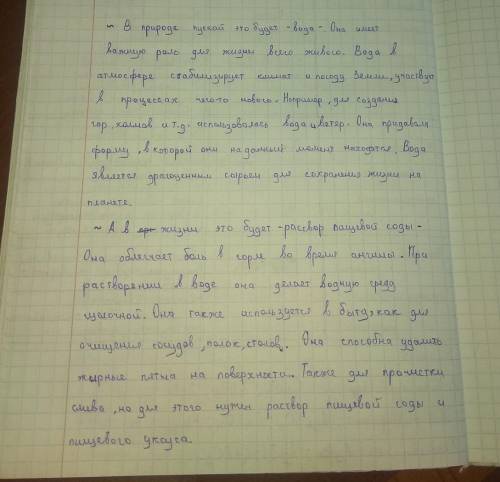 ~ В природе пускай это будет -вода-. Она имет
важную роль для жизни всего живого. Вода в
атмосфере стабилизирует климат и погоду Земли, участвуя
в процессах чего-то нового. Например, для создания
гор, холмов и т.д. использовалась вода и ветер. Она придавала
форму, в которой они на данный момент находятся. Вода
является драгоценным сырьем для сохранения жизни на
планете.
~ А в жизни это будет -расвор пищевой соды-
Она облегчает боль в горле во время ангины. При
растворении в воде она делает водную среду
щелочной. Она также используется в быту, как для
очищения сосудов, полок, столов. Она способна удалить
жирные пятна на поверхности. Также для прочистки
слива, но для этого нужен раствор пищевой соды и
пищевого уксуса.